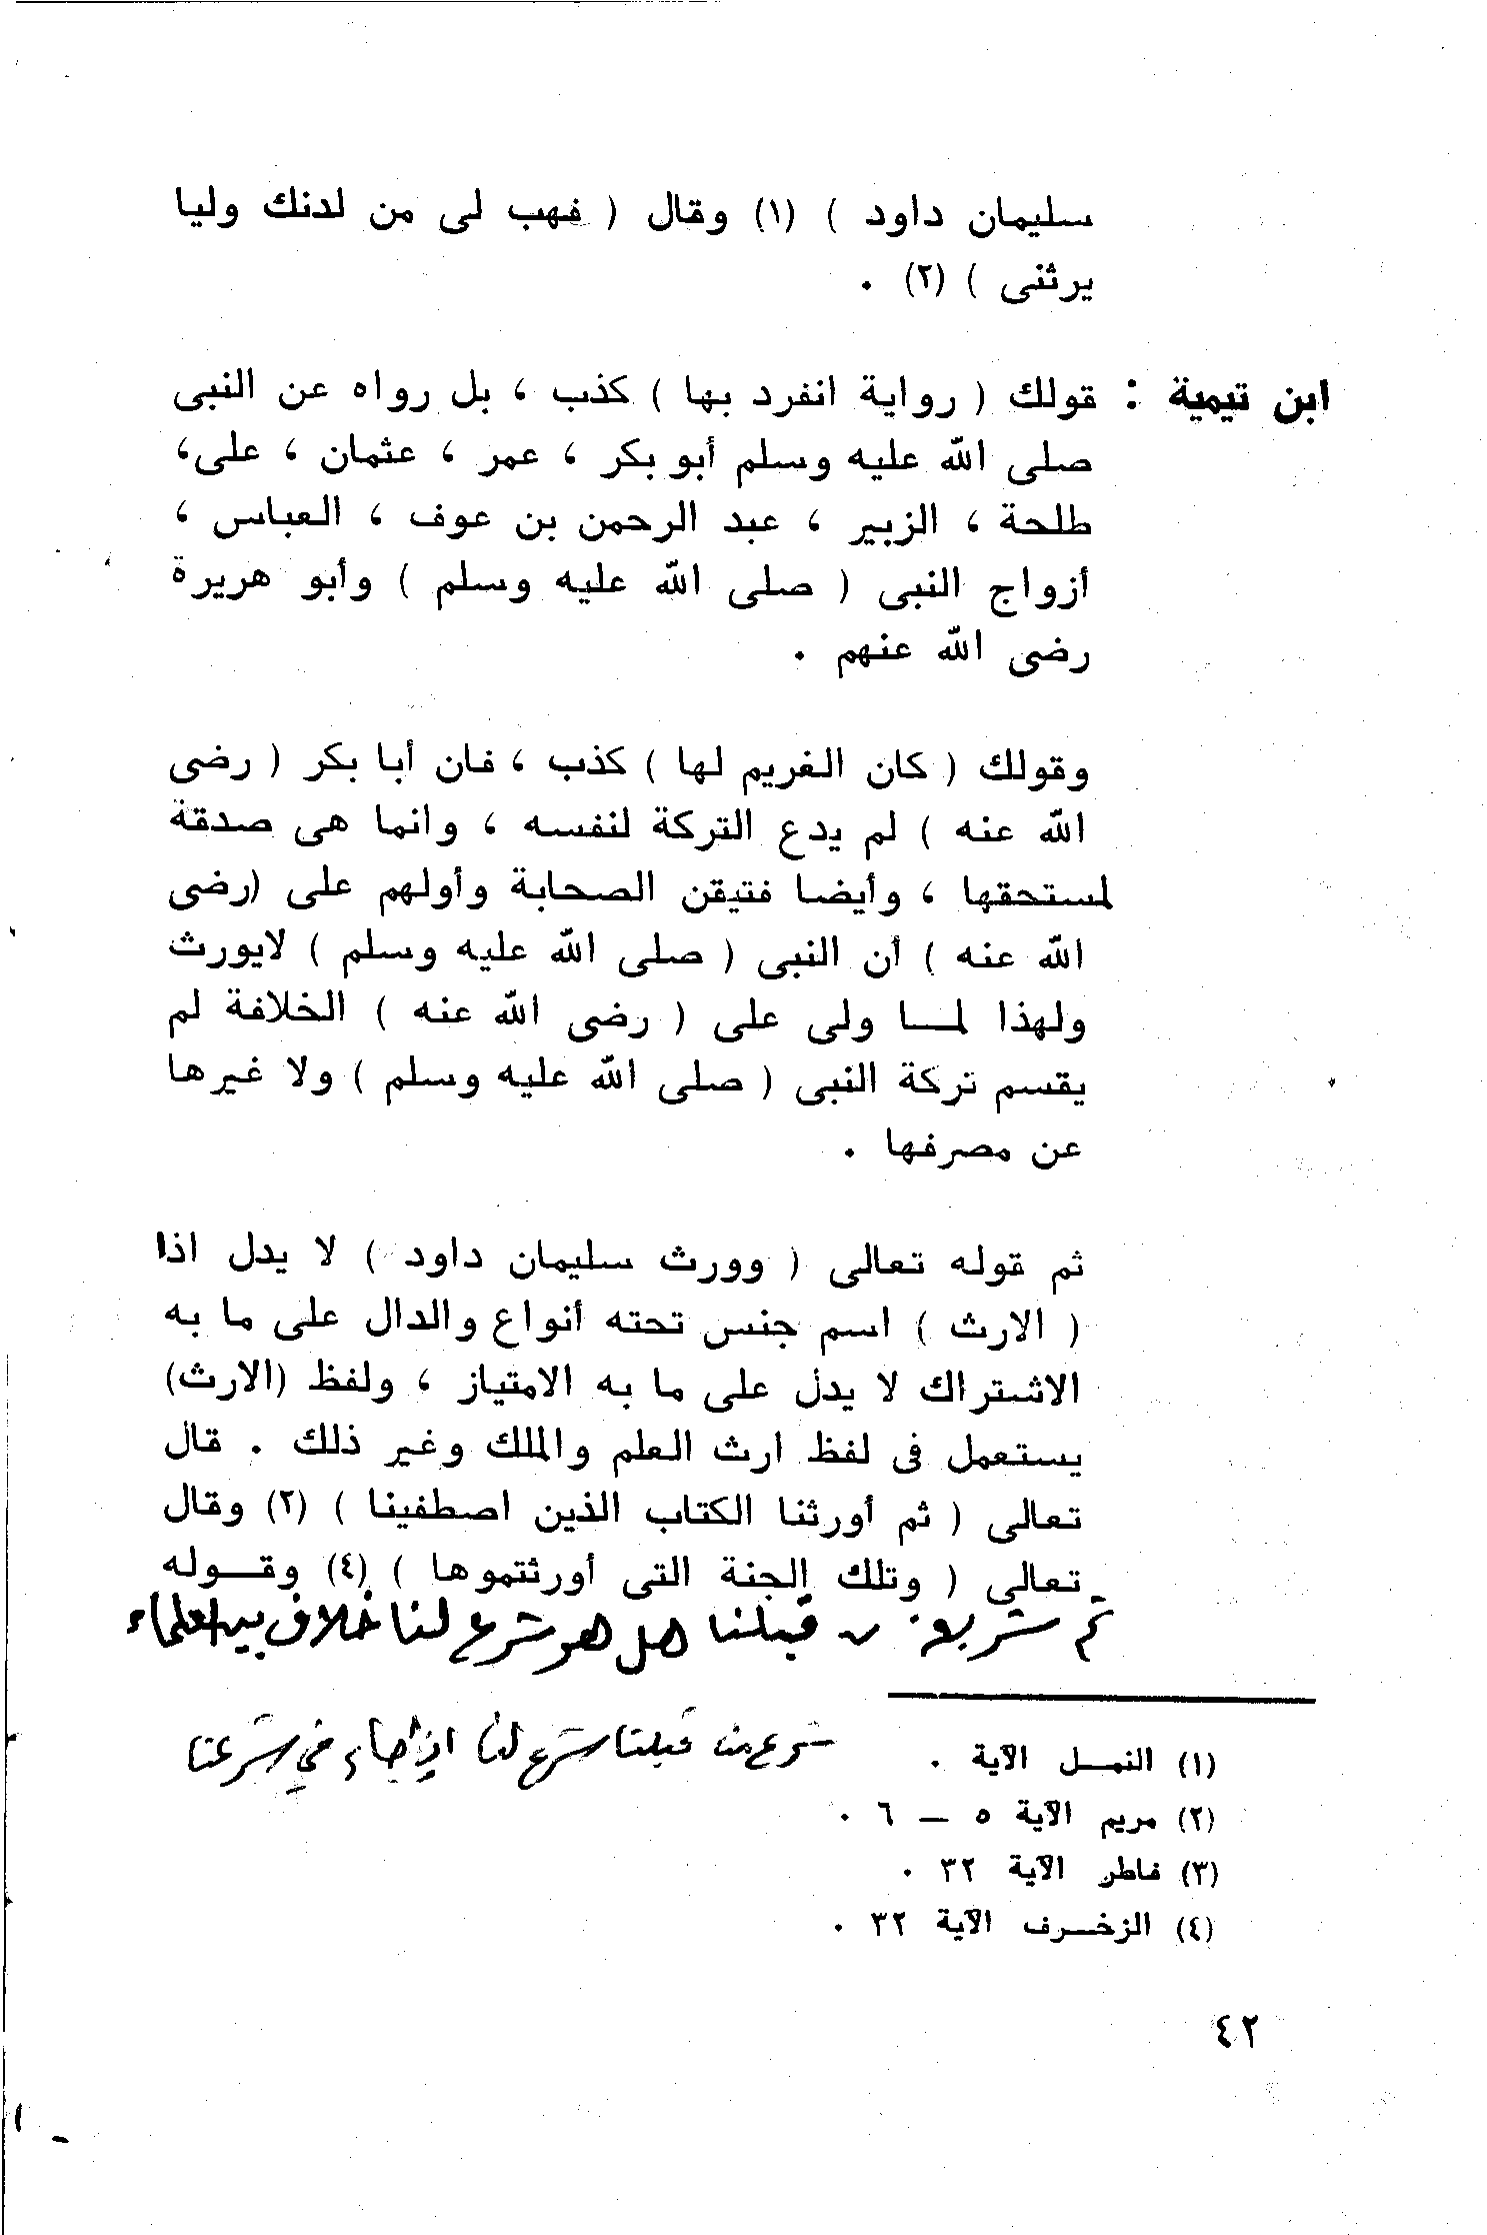 سليمان داود ) (١) وقال ( فهب لى من لدنك وليا
يرثنى ) (٢) .
ابن تيمية : قولك ( رواية انفرد بها ) كذب ، بل رواه عن النبى
صلى الله عليه وسلم أبو بكر ، عمر ، عثمان ، على،
طلحة ، الزبير ، عبد الرحمن بن عوف ، العباس ،
أزواج النبى ( صلى الله عليه وسلم ) وأبو هريرة
رضى الله عنهم .
وقولك ( كان الغريم لها ) كذب ، فان أبا بكر ( رضى
الله عنه ) لم يدع التركة لنفسه ، وانما هى صدقة
لمستحقها ، وأيضا فتيقن الصحابة وأولهم على (رضى
الله عنه ) أن النبى ( صلى الله عليه وسلم ) لايورث
ولهذا لمـــا ولى على ( رضى الله عنه ) الخلافة لم
يقسم تركة النبى ( صلى الله عليه وسلم ) ولا غيرها
عن مصرفها .
ثم قوله تعالى ( وورث سليمان داود ) لا يدل اذا
( الارث ) اسم جنس تحته أنواع والدال على ما به
الاشتراك لا يدل على ما به الامتياز ، ولفظ (الارث)
يستعمل فى لفظ ارث العلم والملك وغير ذلك . قال
تعالى ( ثم أورثنا الكتاب الذين اصطفينا ) (٢) وقال
تعالى ( وتلك الجنة التى أورثتموها ) (٤) وقـــوله
ثم قبلنا هل هو شرع لنا خلاف بين العلماء
شرع من قبلنا شرع لنا إذا جاء في شرعنا
(١) النمــل الآية .
(٢) مريم الآية ٥ ــ ٦ .
(٣) فاطر الآية ٣٢ .
(٤) الزخــرف الآية ٣٢ .
٤٢